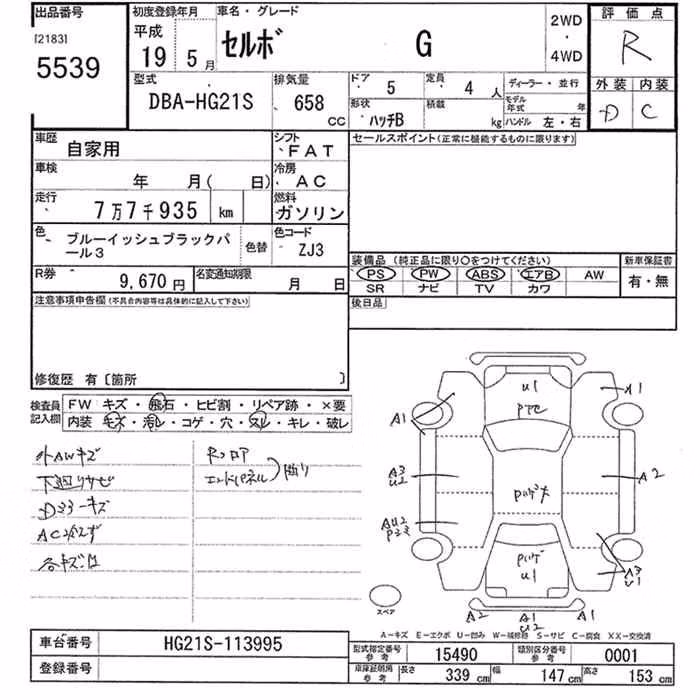 出品番号
[2183]
5539
初度登録年月
平成
19 5月
車名・グレード
セルボ G
2WD
・
4WD
評価点
R
外装 内装
D C
型式
DBA-HG21S
排気量
658
CC
ドア 5
定員 4 人
ディーラー・並行
形状 ハッチB
積載 kg
モデル年式 年
ハンドル 左・右
車歴 自家用
シフト FAT
車検 年 月( 日)
冷房 AC
走行 7万7千935 km
燃料 ガソリン
色 ブルーイッシュブラックパール3
色替
色コード ZJ3
R券 9,670円
名変通知期限 月 日
セールスポイント(正常に機能するものに限ります)
装備品 (純正品に限り〇をつけてください)
PS PW ABS エアB AW
SR ナビ TV カワ
新車保証書
有・無
後日品
注意事項申告欄(不具合内容等は具体的に記入して下さい)
修復歴 有〔箇所 〕
検査員記入欄
FW キズ・飛石・ヒビ割・リペア跡・×要
内装 キズ・汚レ・コゲ・穴・スレ・キレ・破レ
外AWキズ
下廻りサビ
AC冷えず
Rフロア
エンドパネル
U1
A1
A1
A3
U2
A2
AU2
U1
A3
U1
A2
A1
U2
A1
スペア
A-キズ E-エクボ U-凹み W-補修跡 S-サビ C-腐食 XX-交換済
車台番号 HG21S-113995
登録番号
型式指定番号 参考 15490
類別区分番号 参考 0001
車庫証明用 参考 長さ 339 cm 幅 147 cm 高さ 153 cm